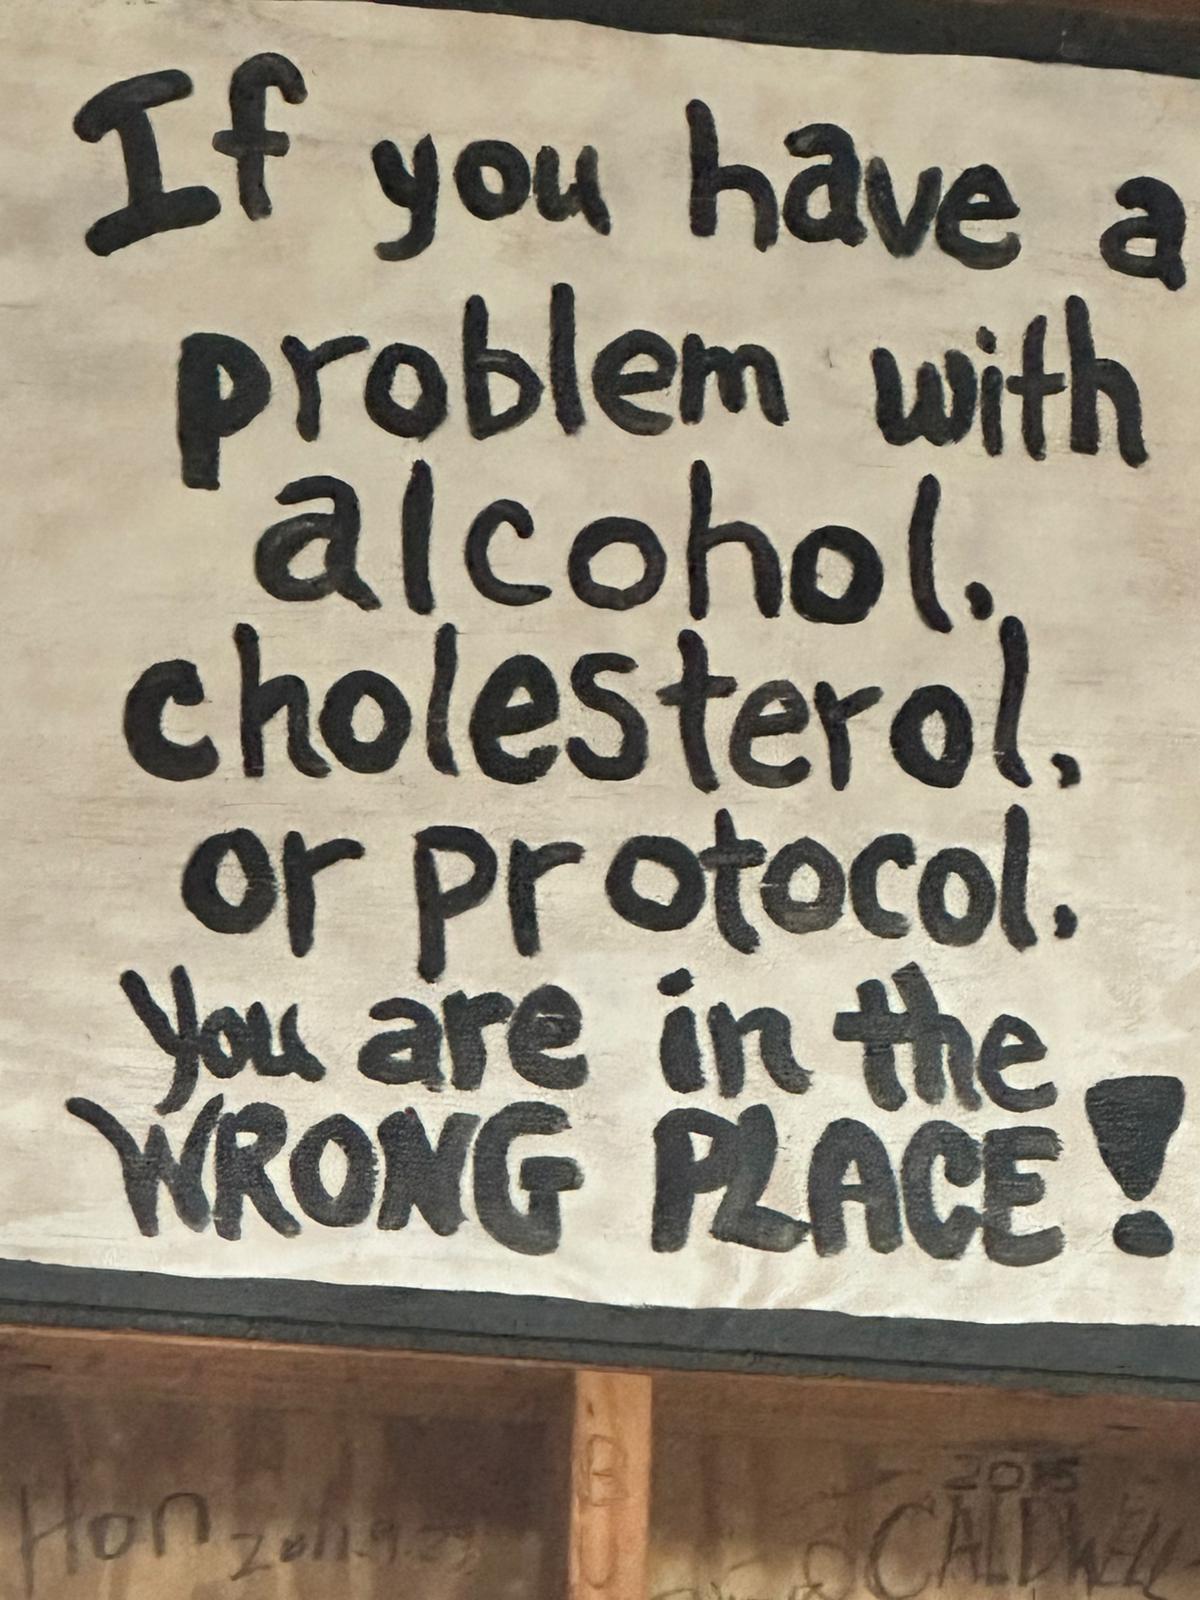 If you have a
problem with
alcohol,
cholesterol,
or protocol,
you are in the
WRONG PLACE!
Hon
2015
CALDWELL